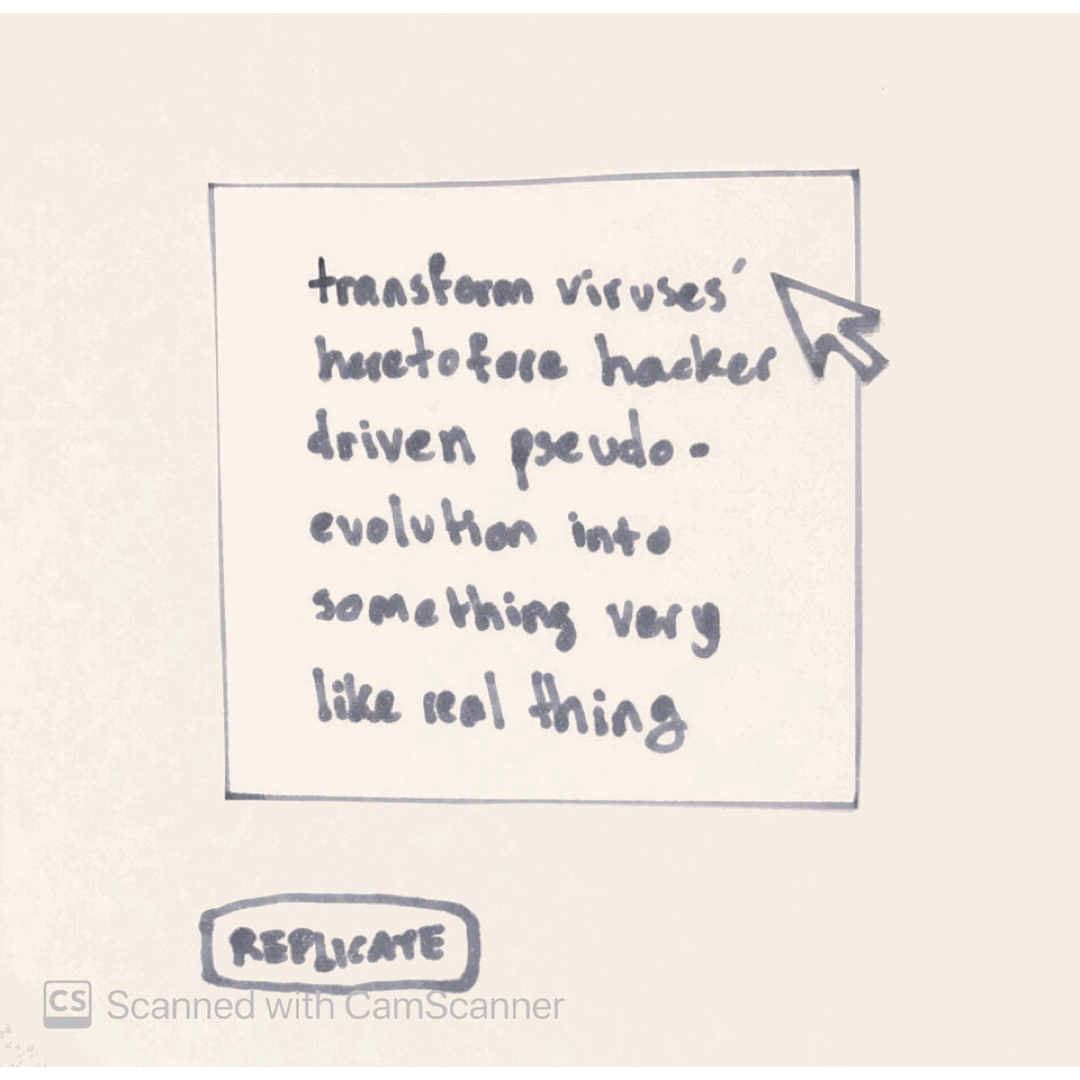 transform viruses'
heretofore hacker
driven pseudo-
evolution into
something very
like real thing
REPLICATE
CS Scanned with CamScanner